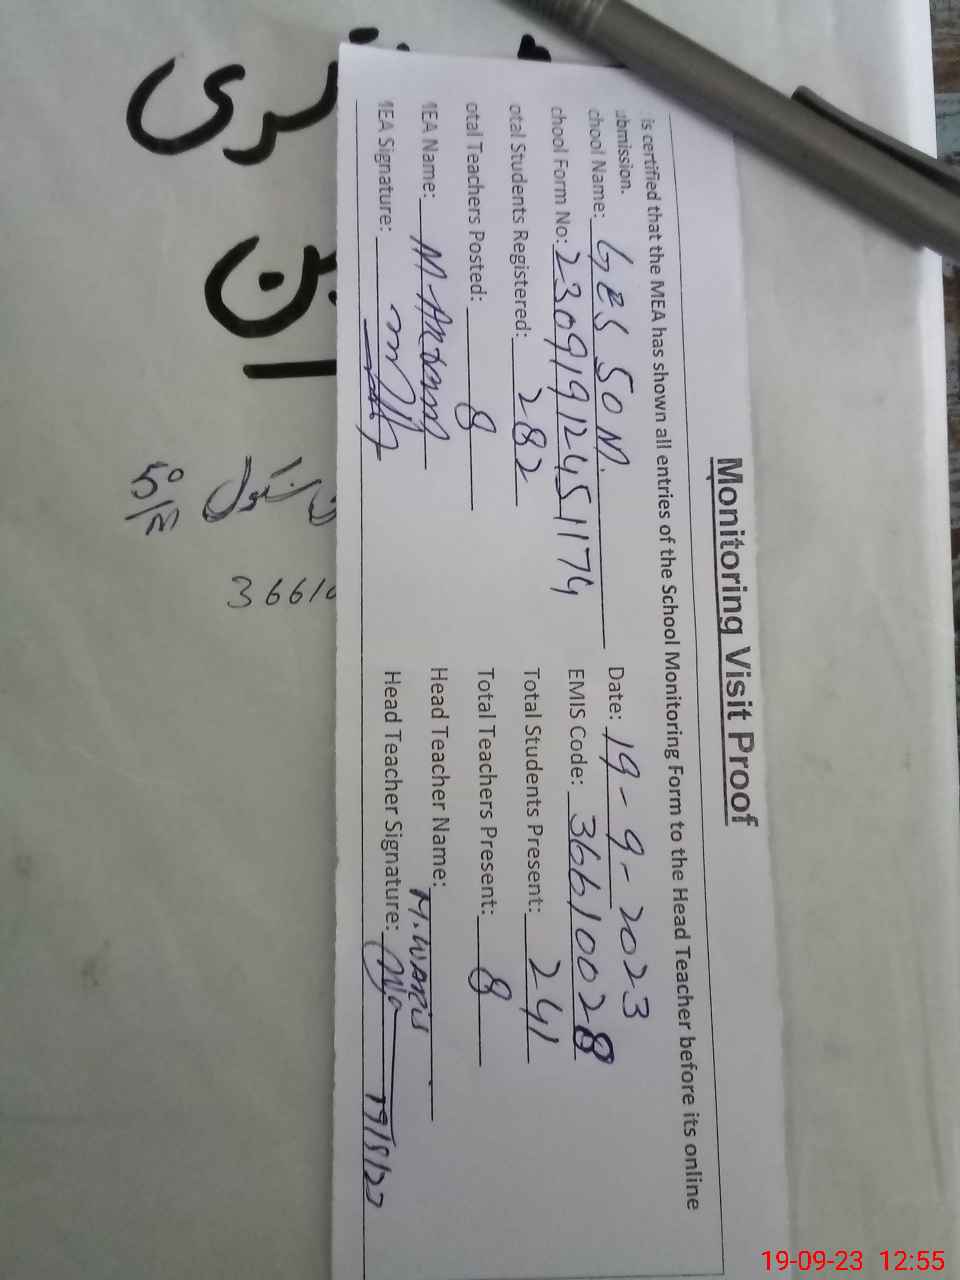 Monitoring Visit Proof
is certified that the MEA has shown all entries of the School Monitoring Form to the Head Teacher before its online
ubmission.
chool Name: GES 50 M. Date: 19-9-2023
chool Form No: 2309191245 1174 EMIS Code: 36610028
otal Students Registered: 282 Total Students Present: 241
otal Teachers Posted: 8 Total Teachers Present: 8
MEA Name: M. Head Teacher Name: M. WARIS
MEA Signature: Head Teacher Signature:
50/E
3661
19-09-23 12:55